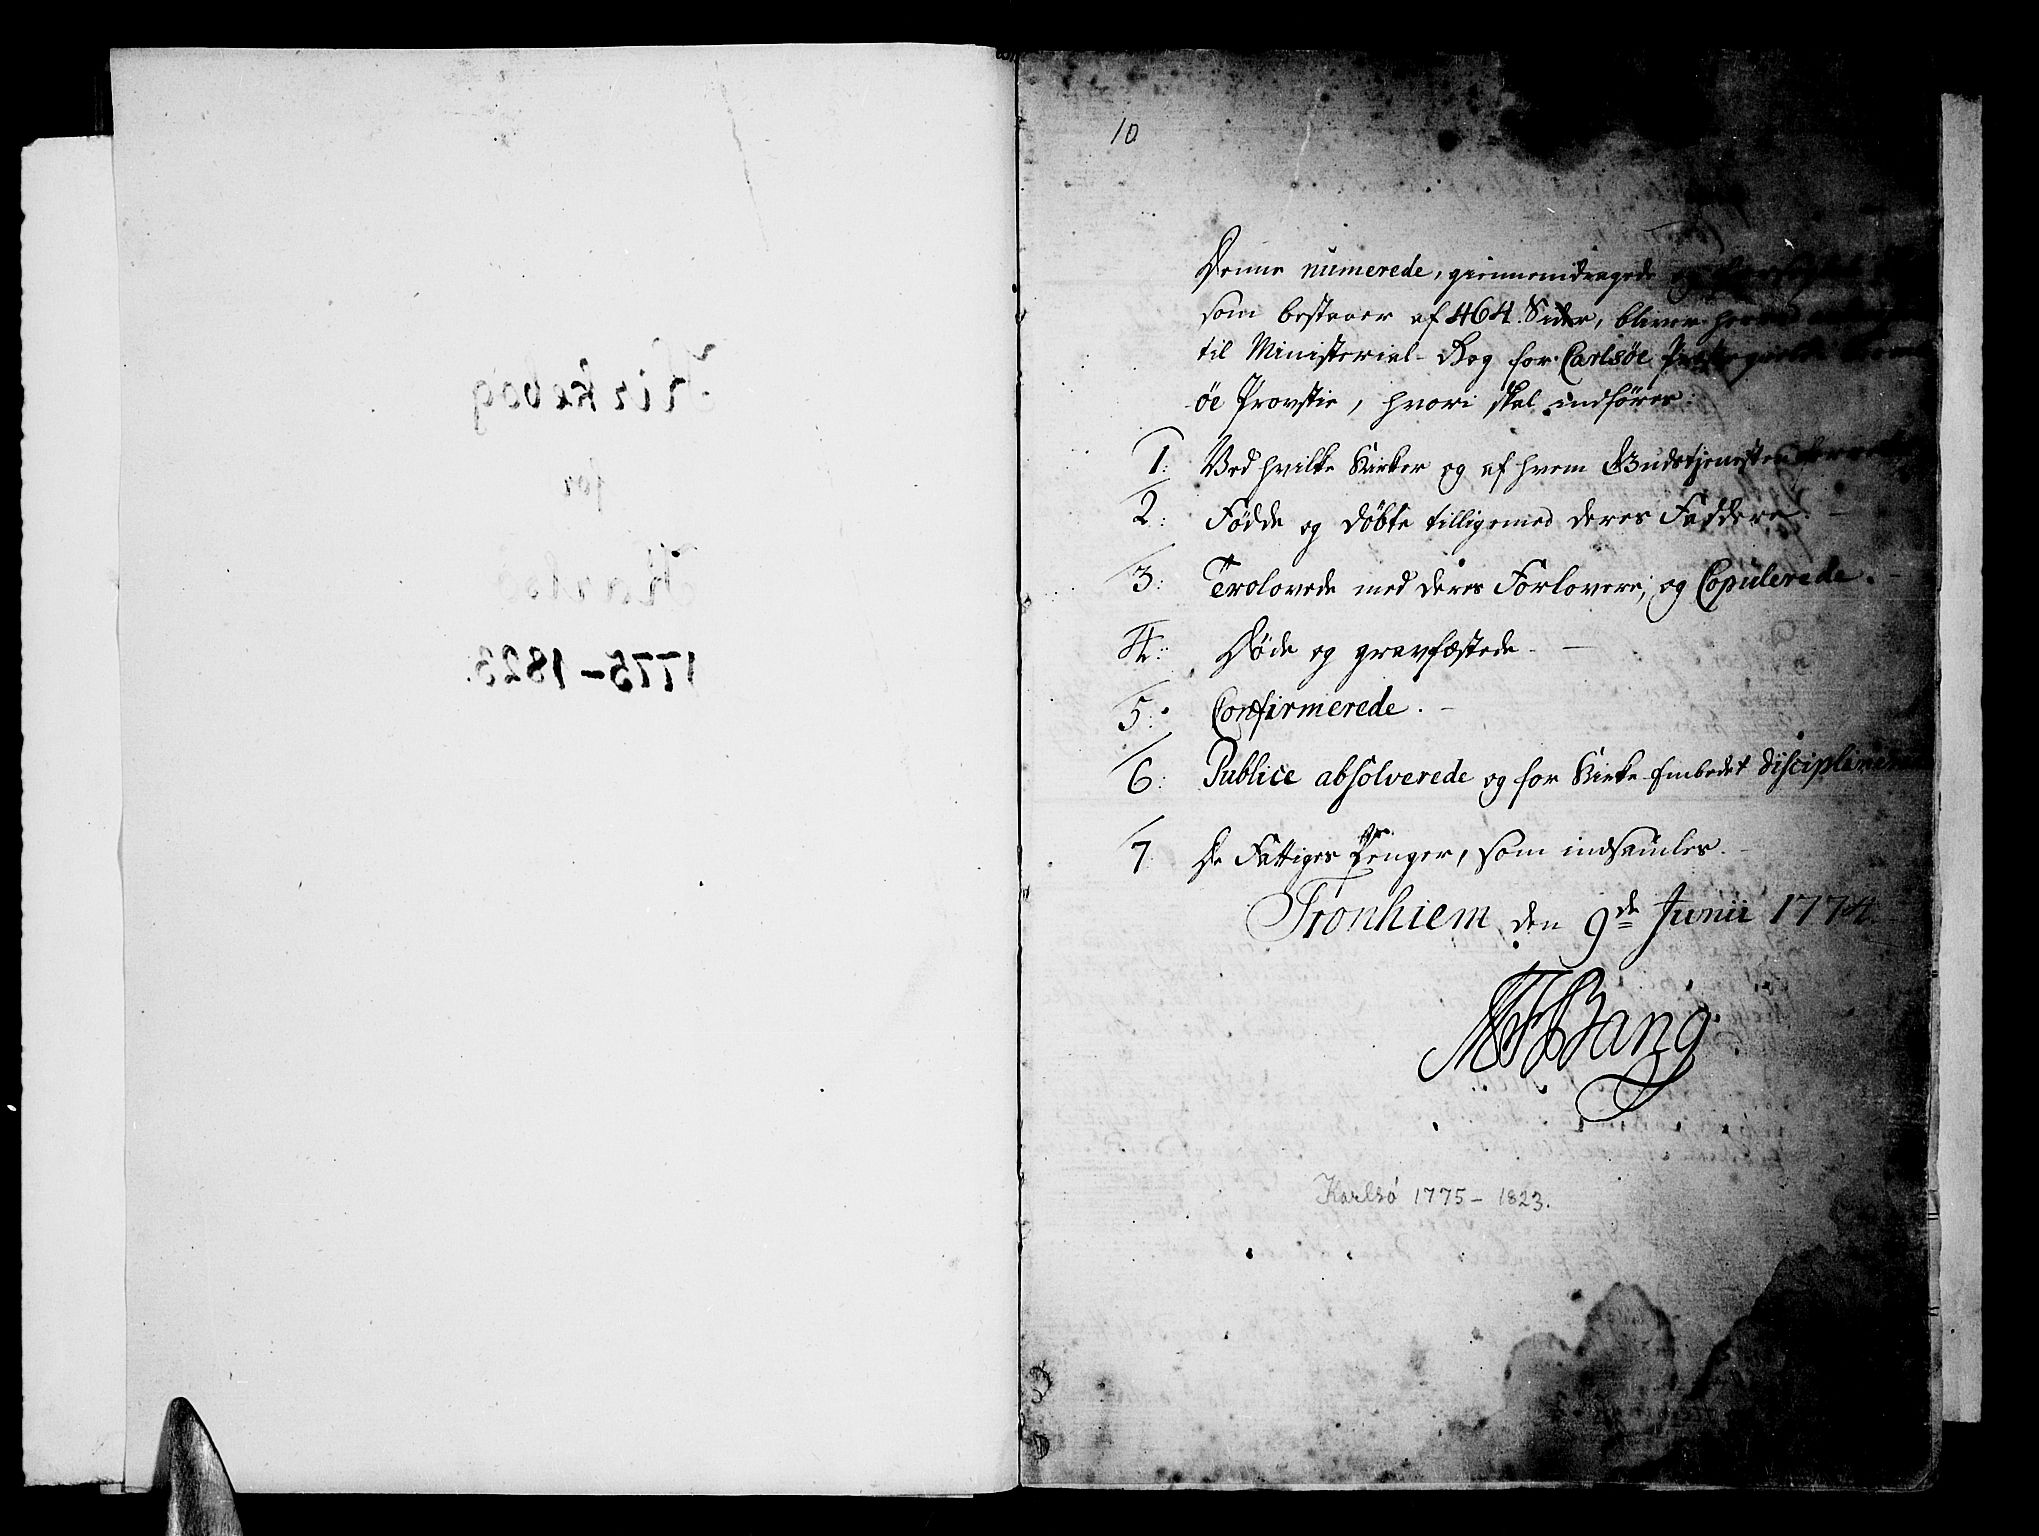 Kirkebog
for
Karlsö
1775-1823.
10
Denne numerede, giennemdragede og
som bestaaer af 464. Sider, bliver herved
til Ministerial-Bog for Carlsøe Præstegield
øe Provstie, hvori skal indføres:
1. Ved hvilke Kirker og af hvem Gudstjenesten
2. Fødde og døbte tilligemed deres Faddere. -
3. Trolovede med deres Forlovere, og Copulerede. -
4. Døde og gravfæstede. -
5. Confirmerede. -
6. Publice absolverede og for Kirke Embedet disciplinerede
7. De Fattiges Penger, som indsamles. -
Tronhiem den 9de Junii 1774.
MFBang
Karlsö 1775-1823.